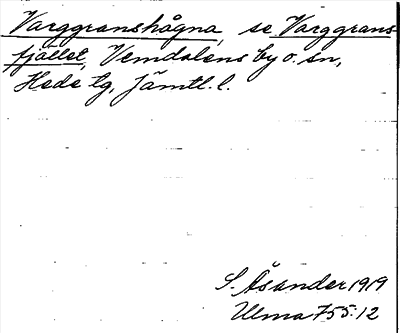 Varggranshågna, se Varggrans-
fjället, Vemdalens by o. sn,
Hede tg, Jämtl. l.
S. Åsander 1919
Ulma 755:12